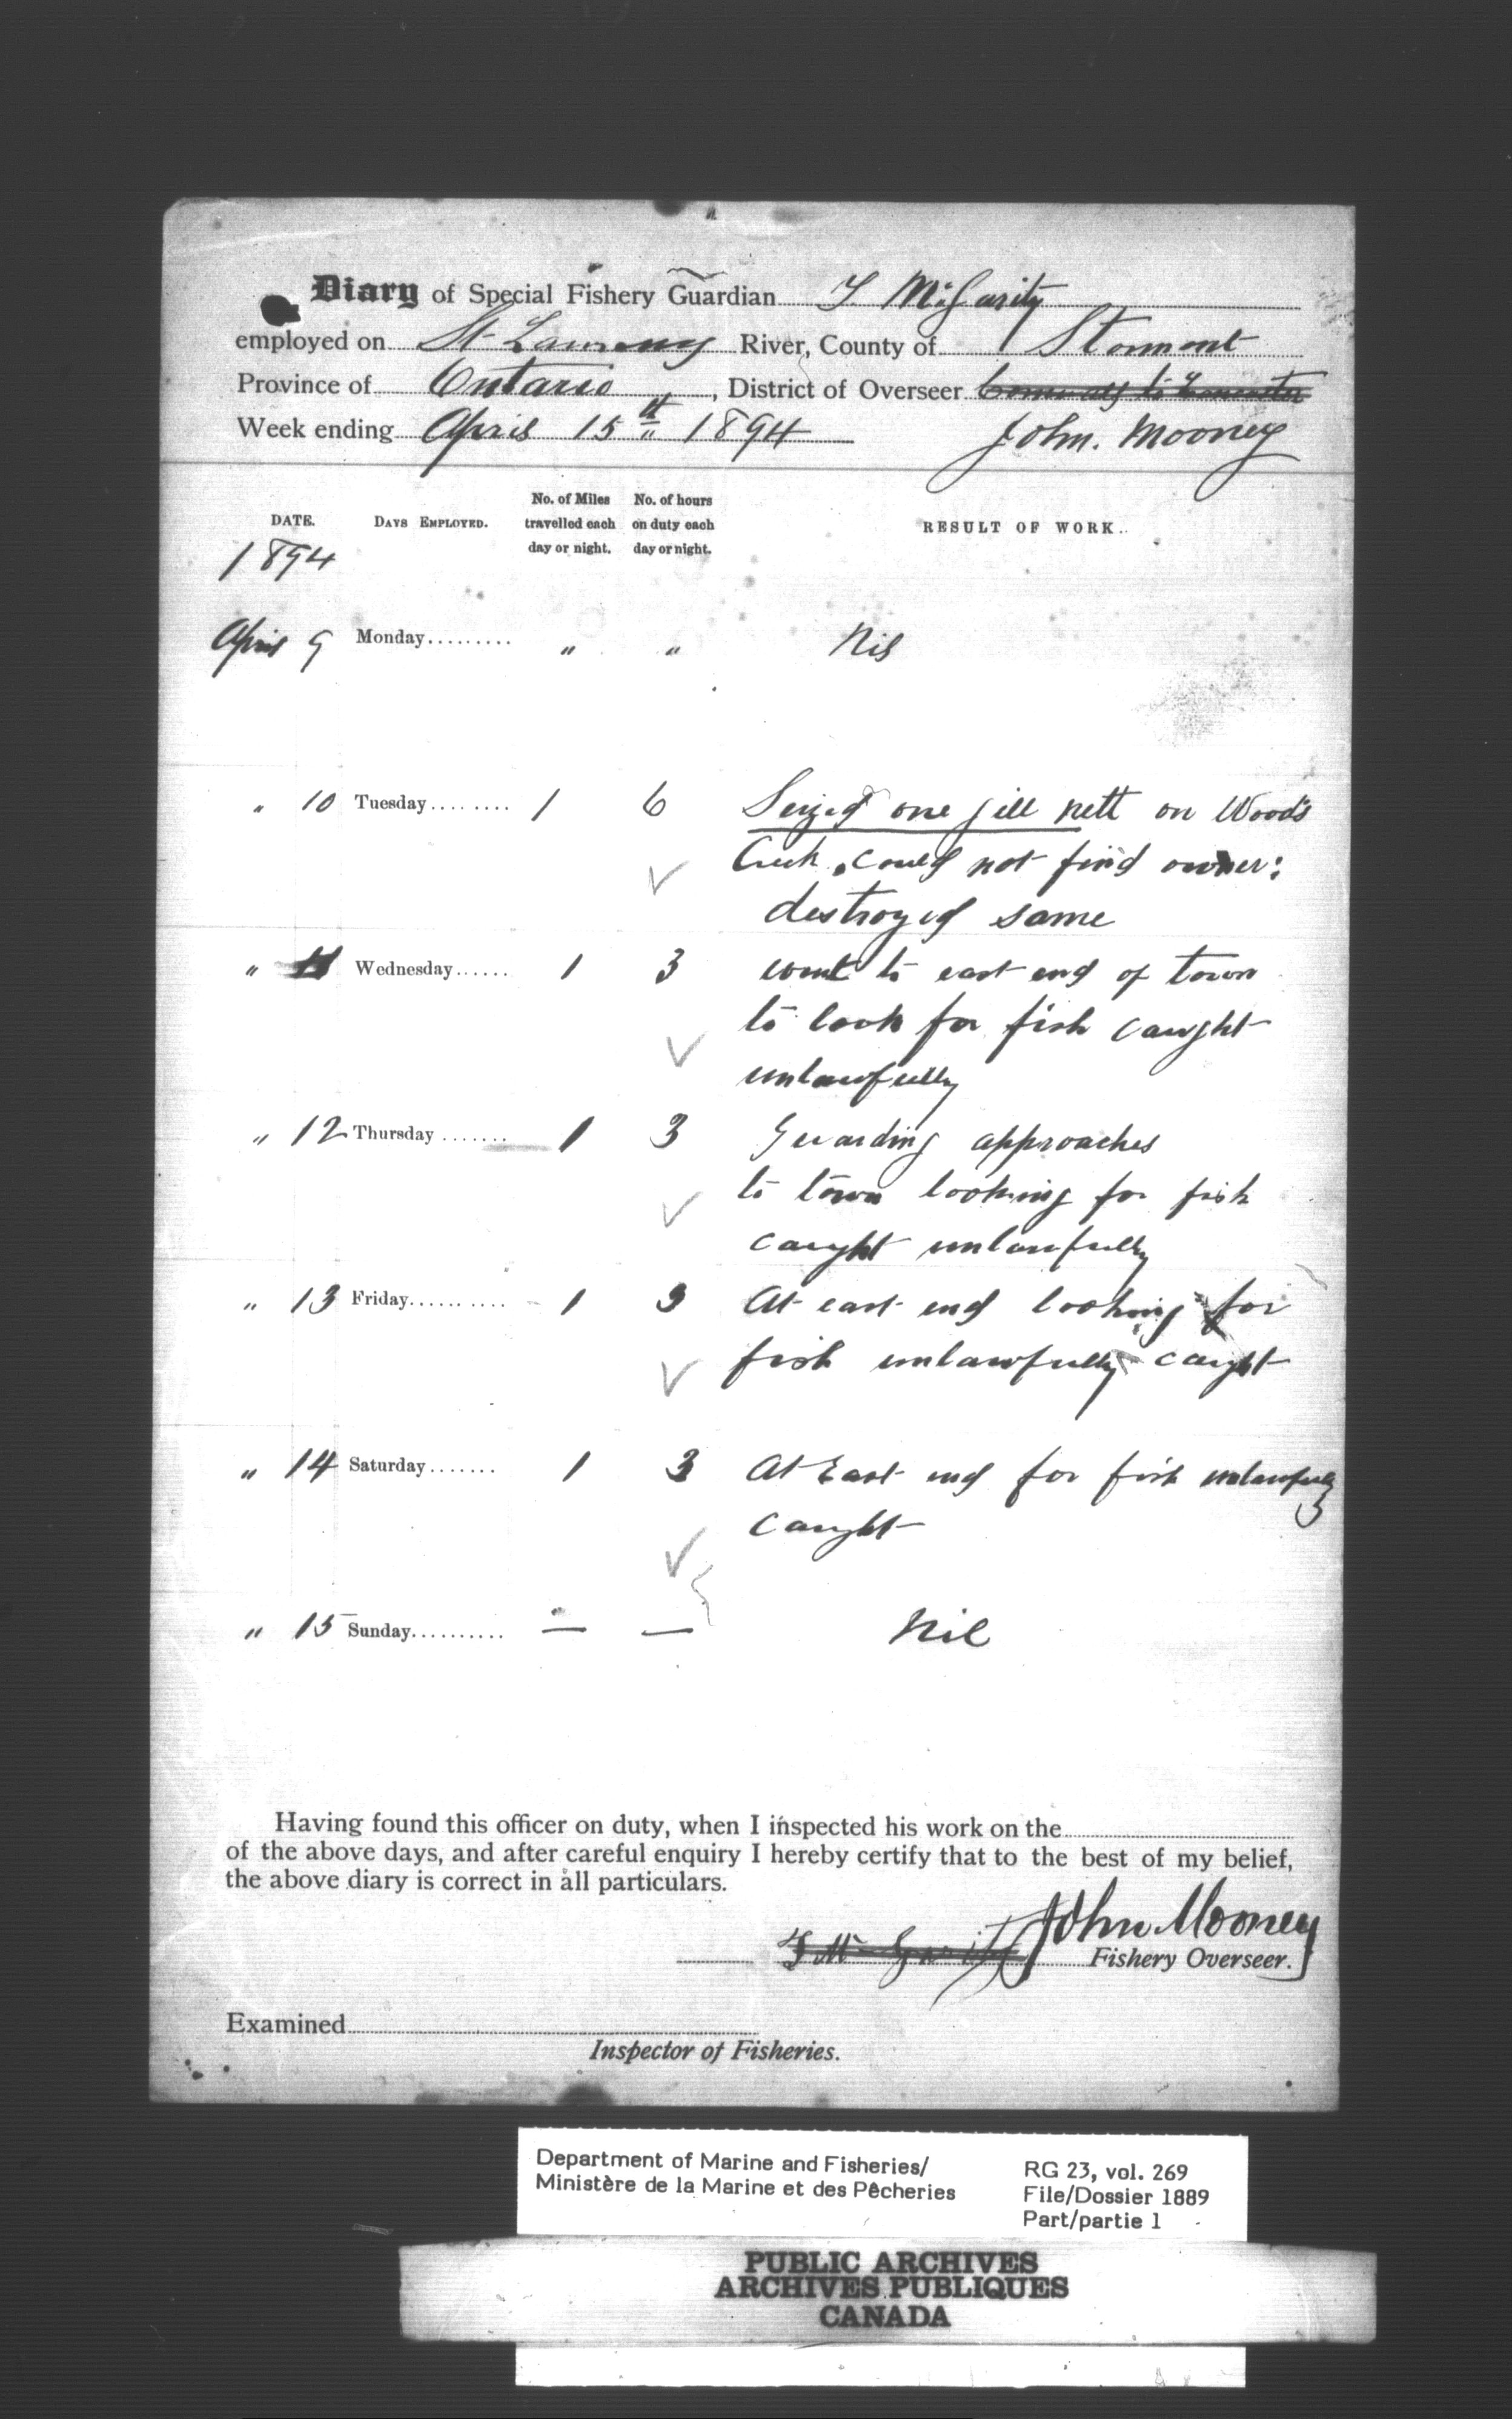 Diary of Special Fishery Guardian T McGarity
employed on St Lawrence River, County of Stormont
Province of Ontario, District of Overseer Cornwall to Lancaster
Week ending April 15th 1894 John. Mooney
DATE. DAYS EMPLOYED. No. of Miles travelled each day or night. No. of hours on duty each day or night. RESULT OF WORK.
1894
April 9 Monday " " Nil
" 10 Tuesday 1 6 Seized one gill nett on Wood's
Creek, could not find owner:
destroyed same
" 11 Wednesday 1 3 went to east end of town
to look for fish caught
unlawfully
" 12 Thursday 1 3 Guarding approaches
to town looking for fish
caught unlawfully
" 13 Friday 1 3 At east end looking for
fish unlawfully caught
" 14 Saturday 1 3 At East end for fish unlawfully
caught
" 15 Sunday — — Nil
Having found this officer on duty, when I inspected his work on the
of the above days, and after careful enquiry I hereby certify that to the best of my belief,
the above diary is correct in all particulars.
T McGarity John Mooney
Fishery Overseer.
Examined
Inspector of Fisheries.
Department of Marine and Fisheries/
Ministère de la Marine et des Pêcheries
RG 23, vol. 269
File/Dossier 1889
Part/partie 1
PUBLIC ARCHIVES
ARCHIVES PUBLIQUES
CANADA